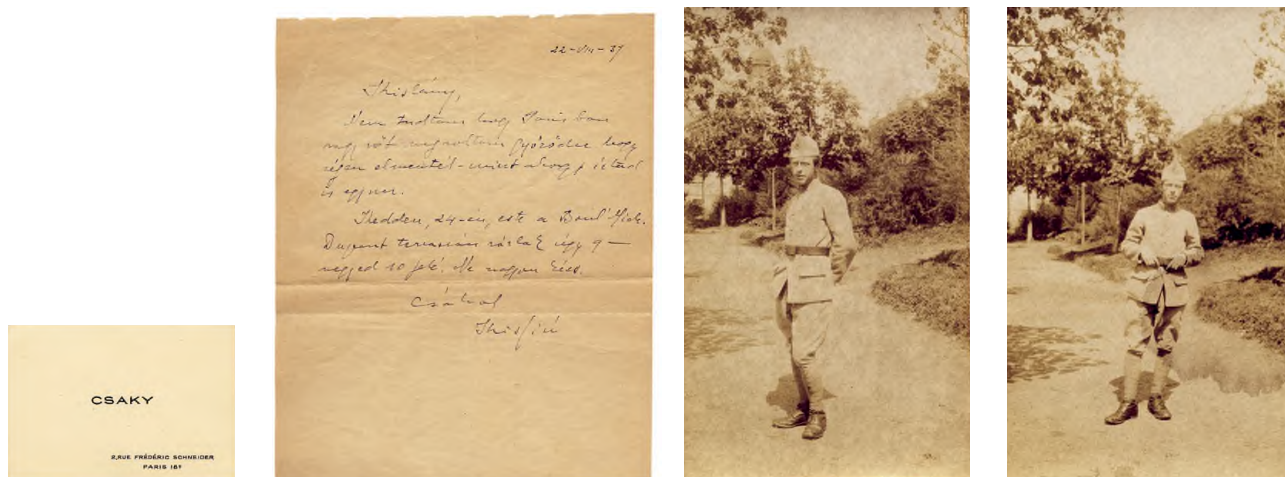 CSAKY
2,RUE FRÉDÉRIC SCHNEIDER
PARIS 18ᵉ
22-VIII-37
Kislány,
Nem tudtam hogy Párisban
vagy sőt meg voltam győződve hogy
régen elmentél - mint ahogy írtad
És
Kedden, 24-én, este a Boul' Mich.
Dupont terraszán várlak úgy 9 —
negyed 10 felé. Ne nagyon késs.
Csókol
Kisfiú